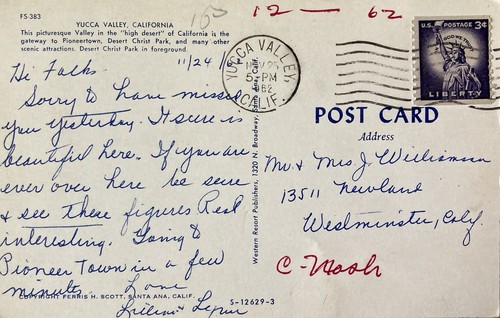 FS-383
YUCCA VALLEY, CALIFORNIA
This picturesque Valley in the "high desert" of California is the
gateway to Pioneertown, Desert Christ Park, and many other
scenic attractions. Desert Christ Park in foreground.
11/24
Hi Folks.
Sorry to have missed
you yesterday. It sure is
beautiful here. If you are
ever over here be sure
& see these figures Real
interesting. Going to
Pioneer Town in a few
minutes. Love
COPYRIGHT FERRIS H. SCOTT, SANTA ANA, CALIF.
S-12629-3
Western Resort Publishers, 1320 N. Broadway, Santa Ana, Calif.
12 — 62
YUCCA VALLEY,
5 PM
CALIF.
U.S. POSTAGE 3¢
IN GOD WE TRUST
LIBERTY
POST CARD
Address
Mr & Mrs J. Williamson
13511 Newland
Westminster, Calif.